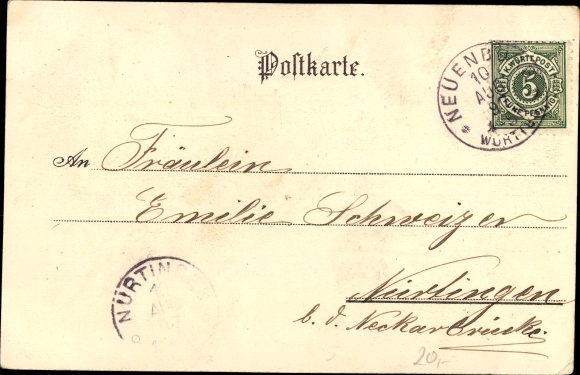 Postkarte.
NEUENB
10
AU
WÜRTT
K. WÜRTT. POST
5
FÜNF PFENNIG
An Fräulein
Emilie Schweizer
Nürtingen
b. d. Neckarbrücke.
NÜRTIN
20,-